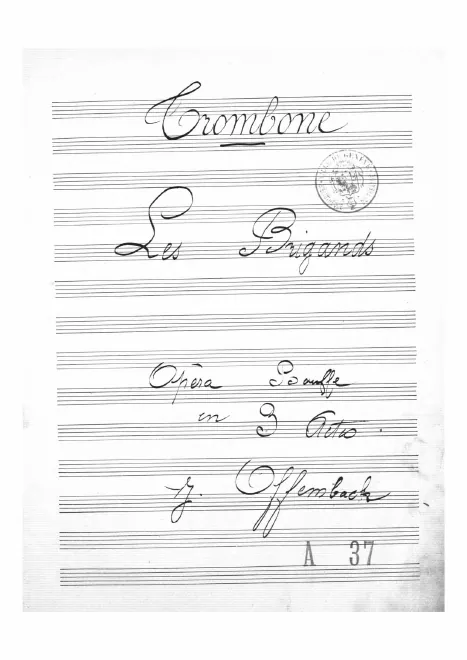 Trombone
Les Brigands
Opèra Bouffe
en 3 Actes.
J. Offembach
A 37